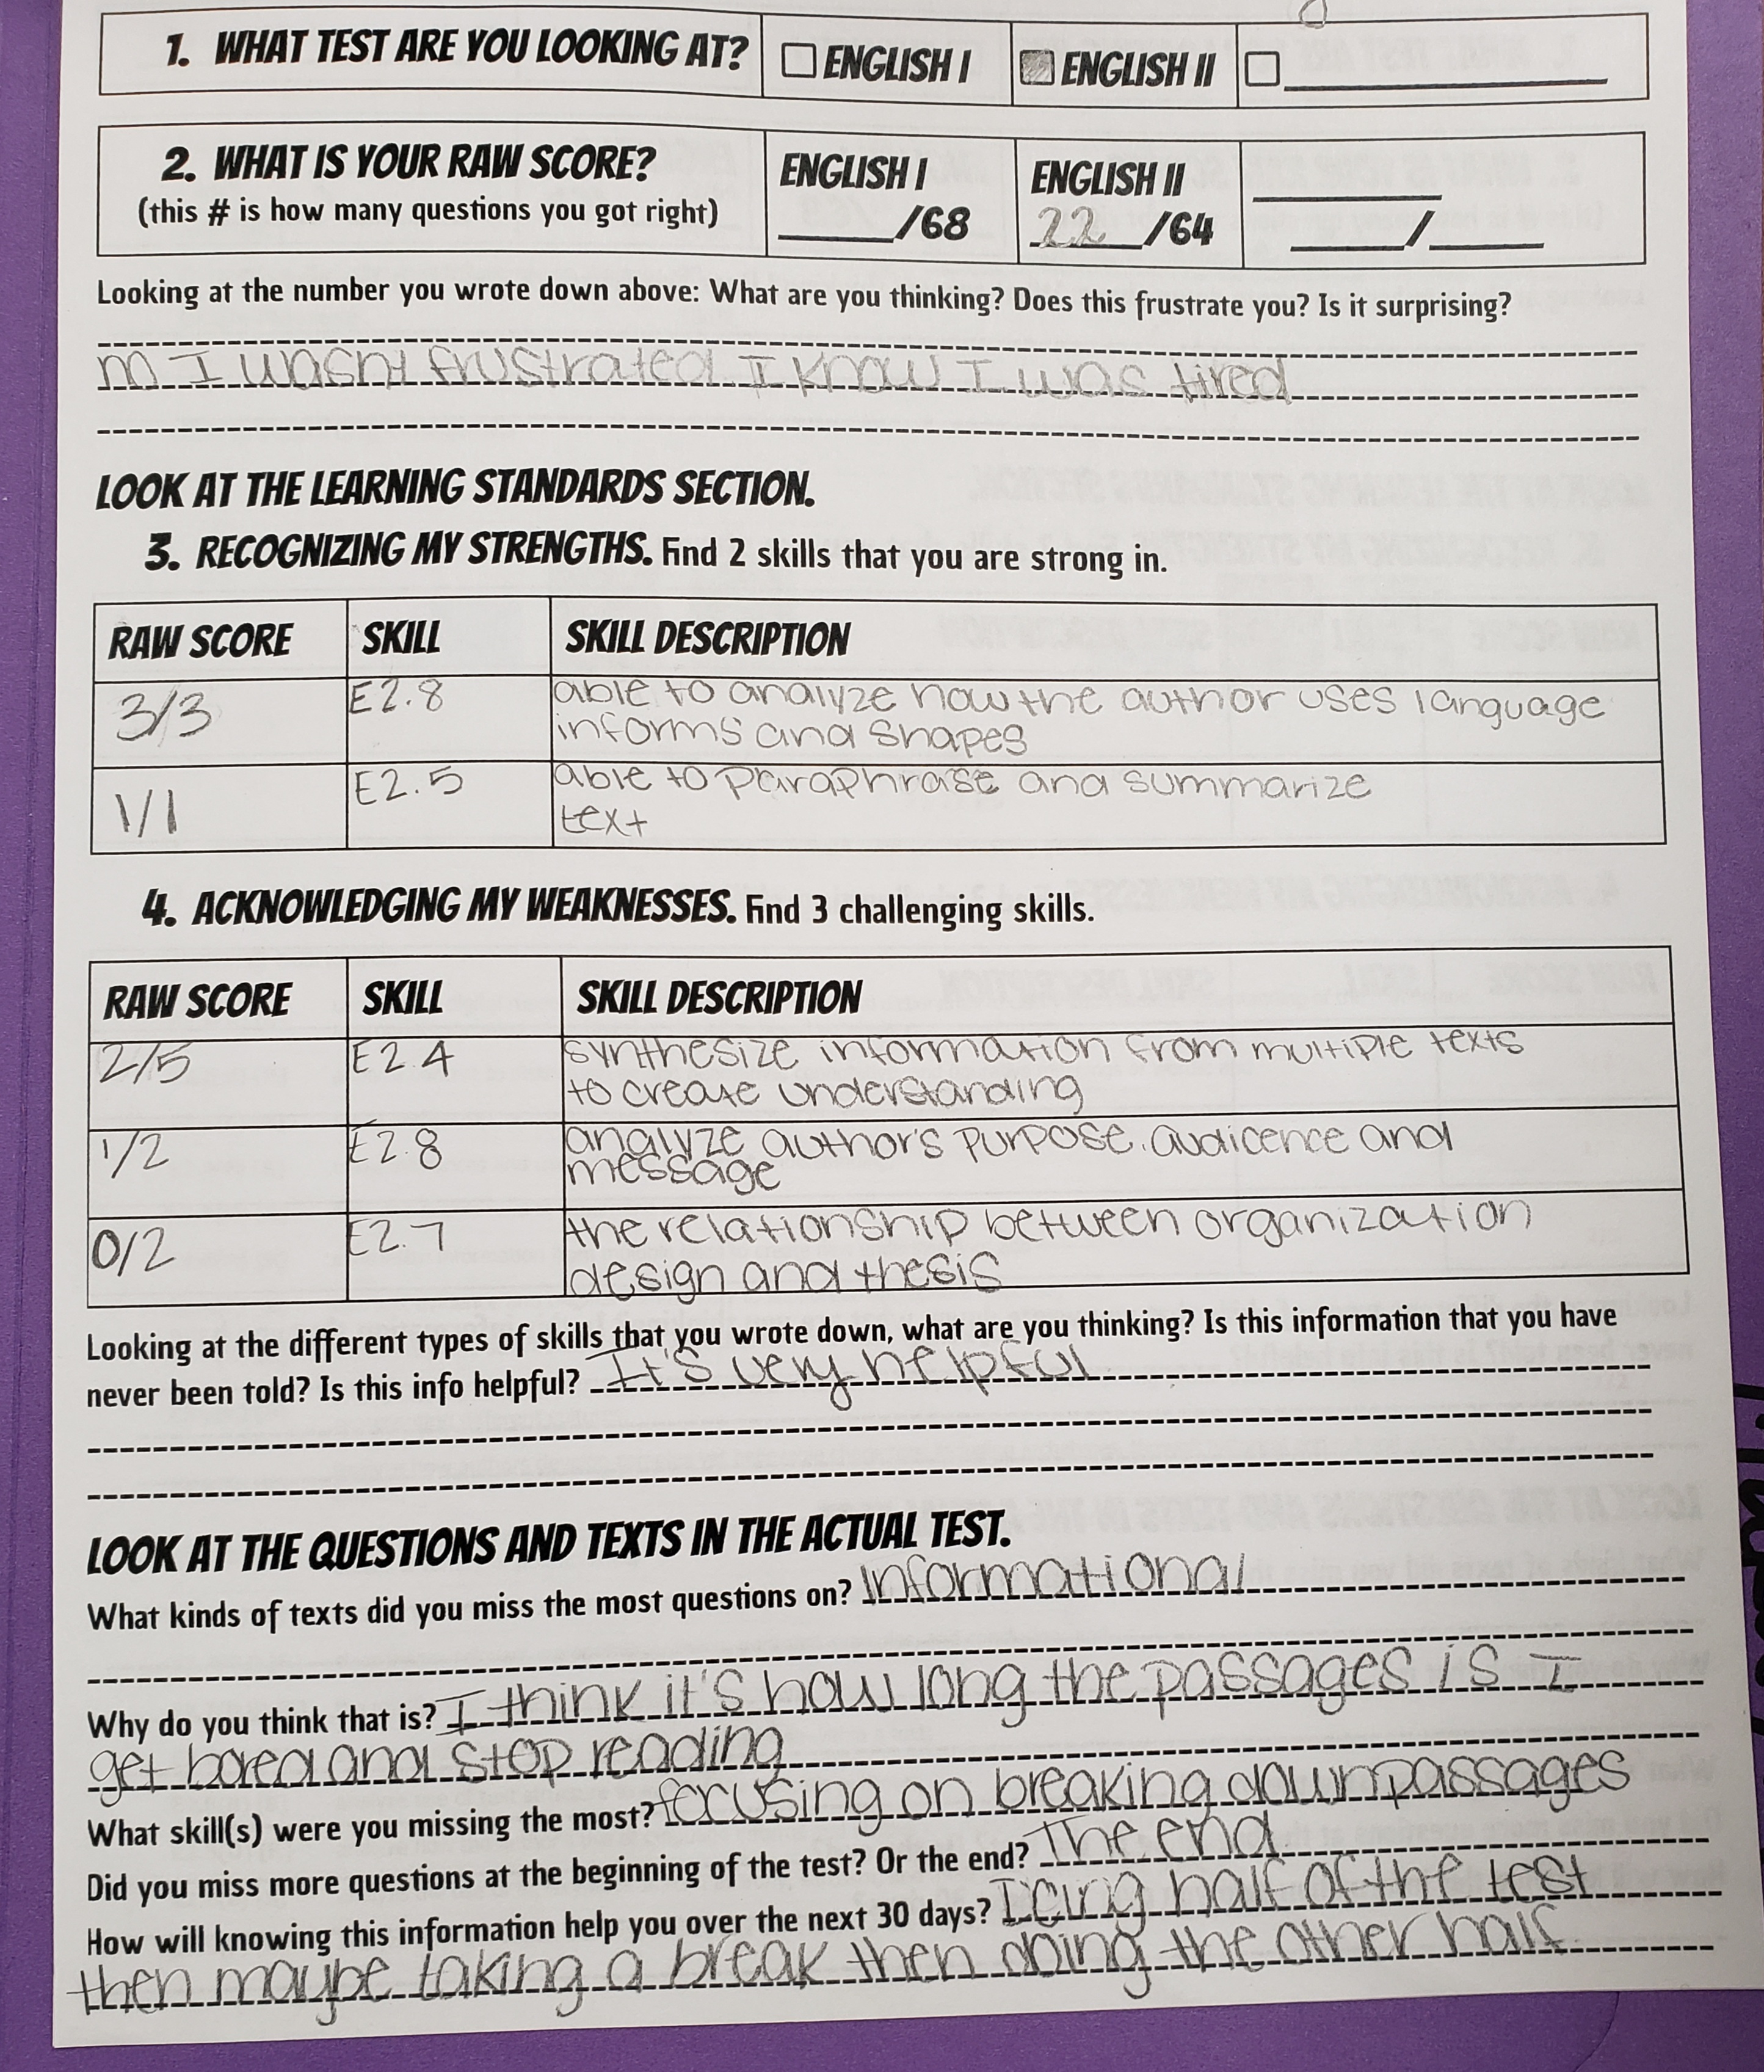 1. WHAT TEST ARE YOU LOOKING AT? ENGLISH I ENGLISH II
2. WHAT IS YOUR RAW SCORE? ENGLISH I ENGLISH II
(this # is how many questions you got right) ____/68 22/64 ____/____
Looking at the number you wrote down above: What are you thinking? Does this frustrate you? Is it surprising?
no I wasnt frustrated I know I was tired
LOOK AT THE LEARNING STANDARDS SECTION.
3. RECOGNIZING MY STRENGTHS. Find 2 skills that you are strong in.
RAW SCORE SKILL SKILL DESCRIPTION
3/3 E2.8 able to analyze how the author uses language
informs and shapes
1/1 E2.5 able to paraphrase and summarize
text
4. ACKNOWLEDGING MY WEAKNESSES. Find 3 challenging skills.
RAW SCORE SKILL SKILL DESCRIPTION
2/5 E2.4 synthesize information from multiple texts
to create understanding
1/2 E2.8 analyze author's purpose. audicence and
message
0/2 E2.7 the relationship between organization
design and thesis
Looking at the different types of skills that you wrote down, what are you thinking? Is this information that you have
never been told? Is this info helpful? It's very helpful
LOOK AT THE QUESTIONS AND TEXTS IN THE ACTUAL TEST.
What kinds of texts did you miss the most questions on? Informational
Why do you think that is? I think it's how long the passages is I
get bored and stop reading
What skill(s) were you missing the most? focusing on breaking down passages
Did you miss more questions at the beginning of the test? Or the end? The end
How will knowing this information help you over the next 30 days? half of the test
then maybe taking a break then doing the other half.